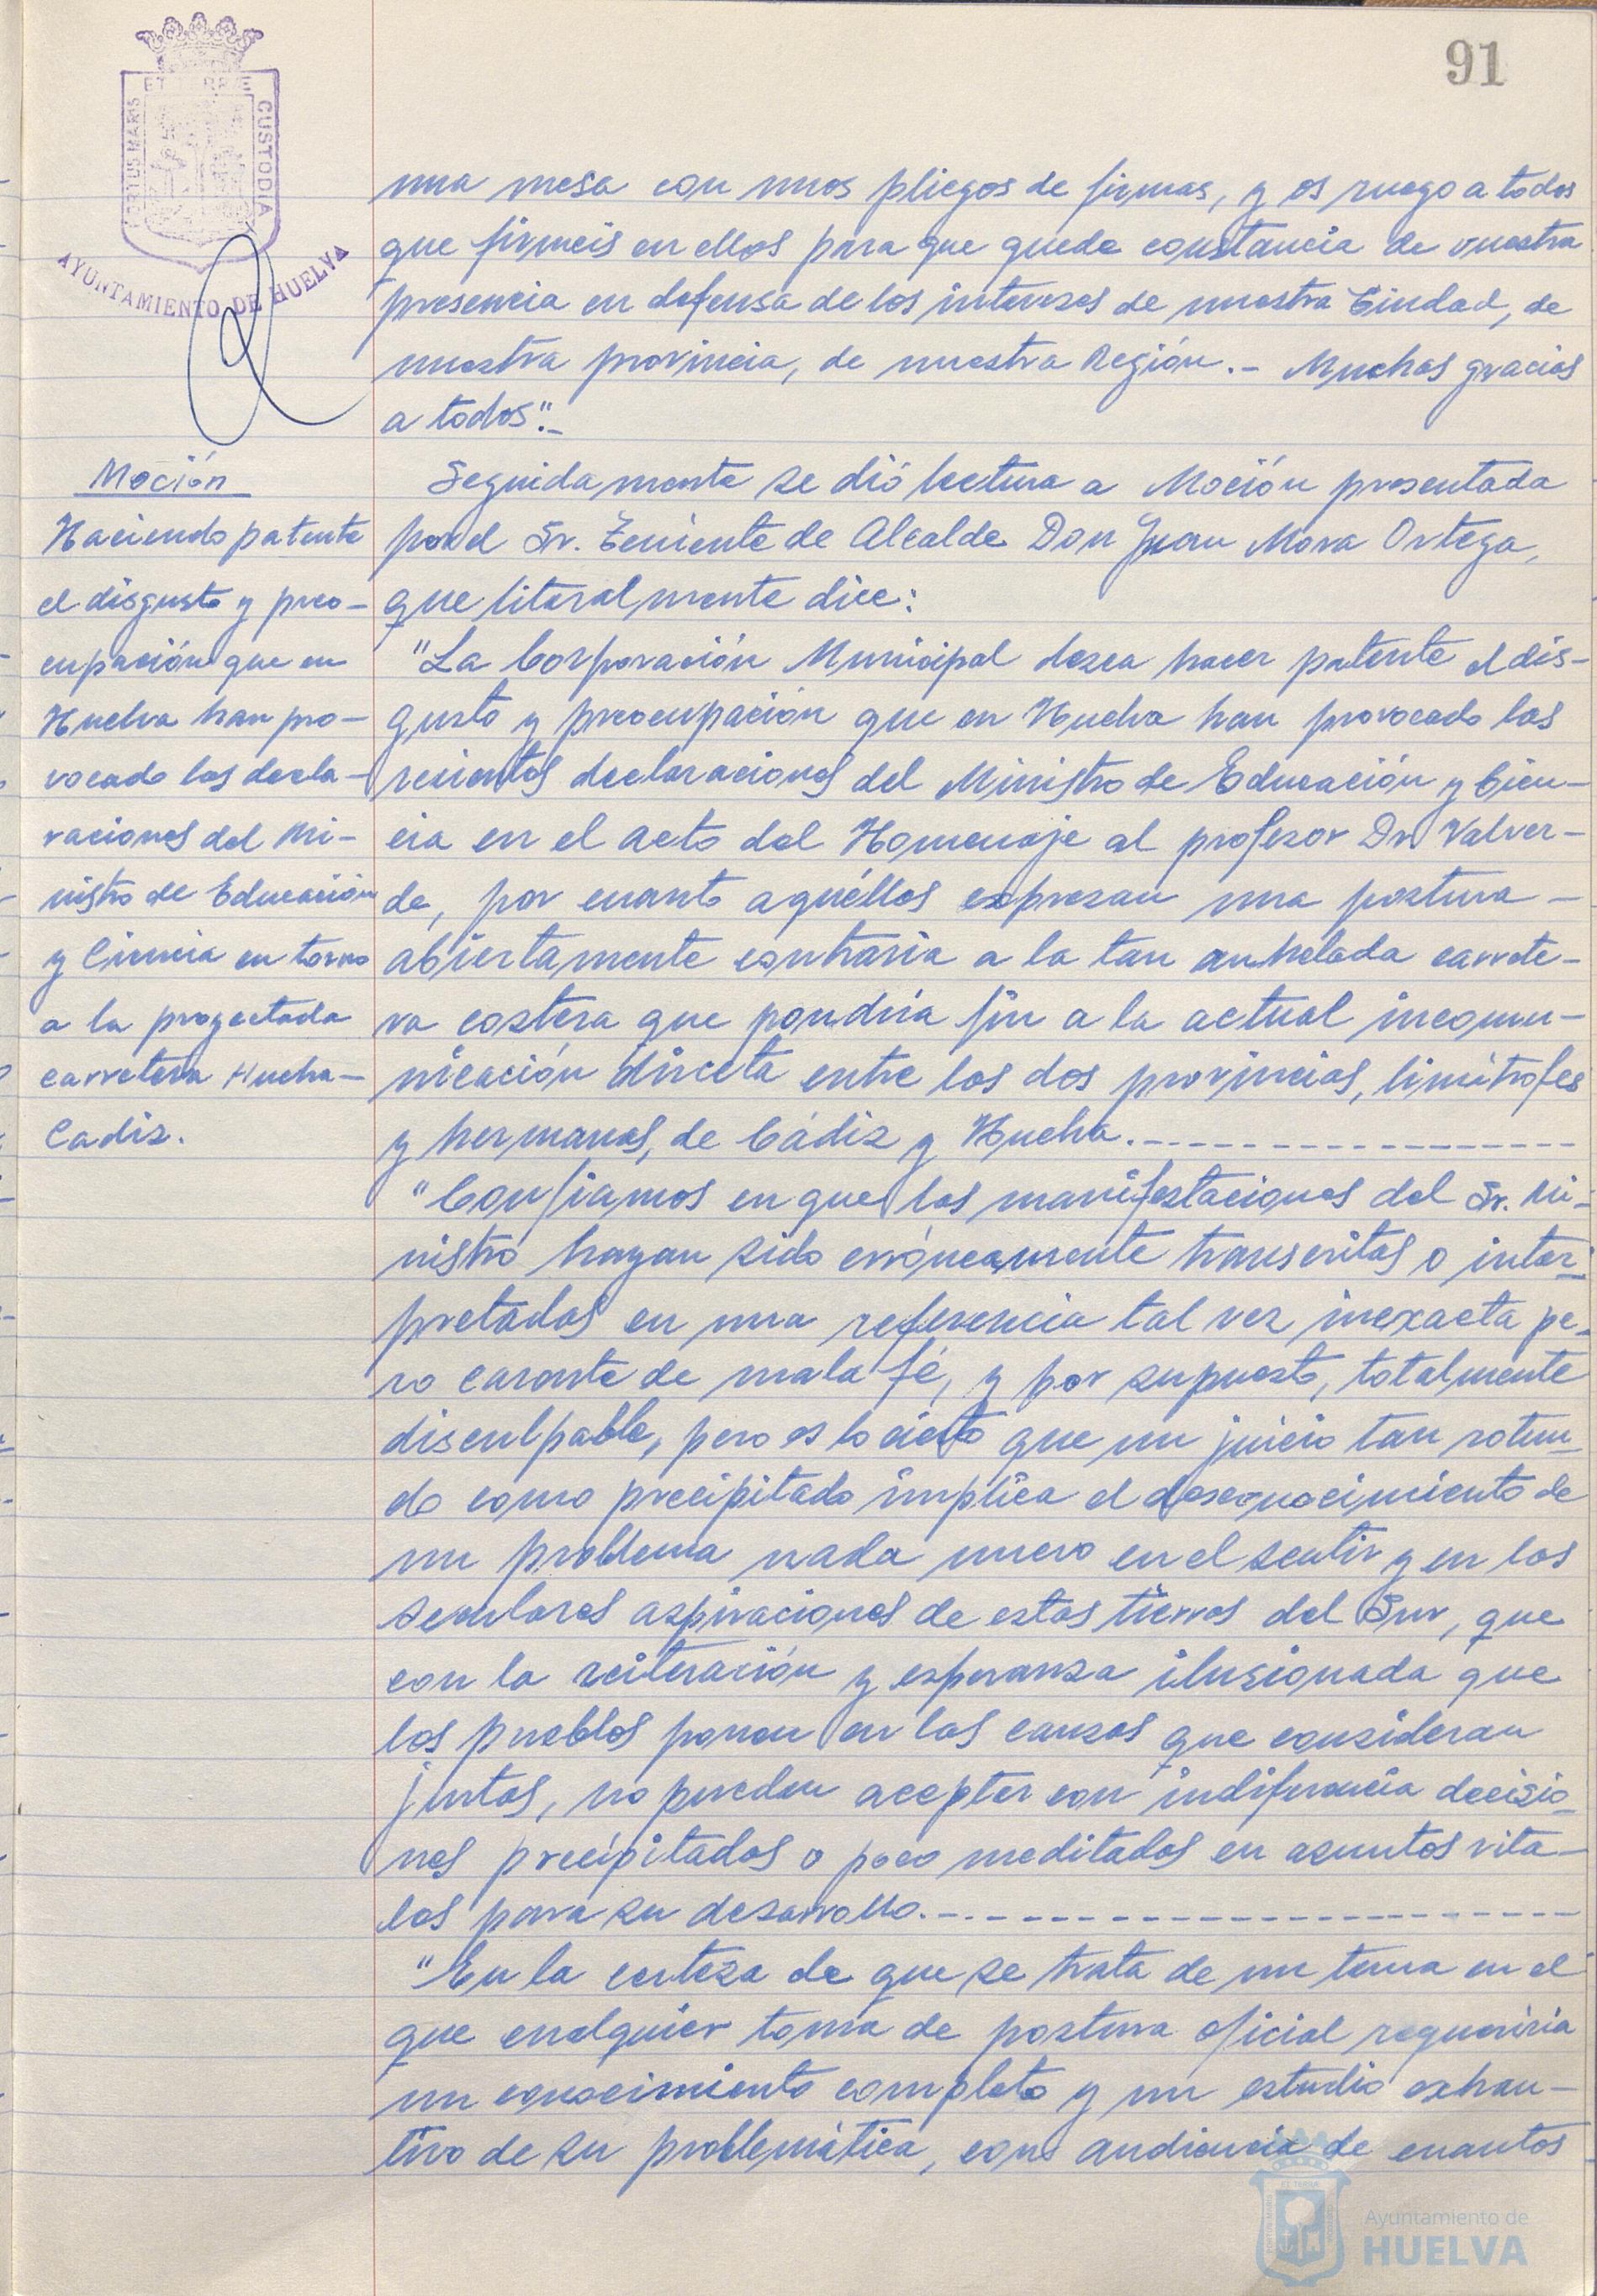 91
PORTUS MARIS ET TERRE CUSTODIA
AYUNTAMIENTO DE HUELVA
una mesa con unos pliegos de firmas, y os ruego a todos
que firmeis en ellos para que quede constancia de vuestra
presencia en defensa de los intereses de nuestra Ciudad, de
nuestra provincia, de nuestra Región.- Muchas gracias
a todos".-
Moción
Haciendo patente
el disgusto y preo-
cupación que en
Huelva han pro-
vocado las decla-
raciones del Mi-
nistro de Educación
y Ciencia en torno
a la proyectada
carretera Huelva-
Cadiz.
Seguidamente se dió lectura a Moción presentada
por el Sr. Teniente de Alcalde Don Juan Mora Ortega,
que literalmente dice:
"La Corporación Municipal desea hacer patente el dis-
gusto y preocupación que en Huelva han provocado las
recientes declaraciones del Ministro de Educación y Cien-
cia en el acto del Homenaje al profesor Dr. Valver-
de, por cuanto aquéllas expresan una postura -
abiertamente contraria a la tan anhelada carrete-
ra costera que pondría fin a la actual incomu-
nicación directa entre las dos provincias, limítrofes
y hermanas, de Cádiz y Huelva.-----------------
"Confiamos en que las manifestaciones del Sr. Mi-
nistro hayan sido erróneamente transcritas o inter-
pretadas en una referencia tal vez inexacta pe-
ro carente de mala fé, y por supuesto, totalmente
disculpable, pero es lo cierto que un juicio tan rotun-
do como precipitado implica el desconocimiento de
un problema nada nuevo en el sentir y en las
seculares aspiraciones de estas tierras del Sur, que
con la reiteración y esperanza ilusionada que
los pueblos ponen en las causas que consideran
justas, no pueden aceptar con indiferencia decisio-
nes precipitadas o poco meditadas en asuntos vita-
les para su desarrollo.-----------------------
"En la certeza de que se trata de un tema en el
que cualquier toma de postura oficial requeriria
un conocimiento completo y un estudio exhau-
tivo de su problemática, con audiencia de cuantos
Ayuntamiento de
HUELVA